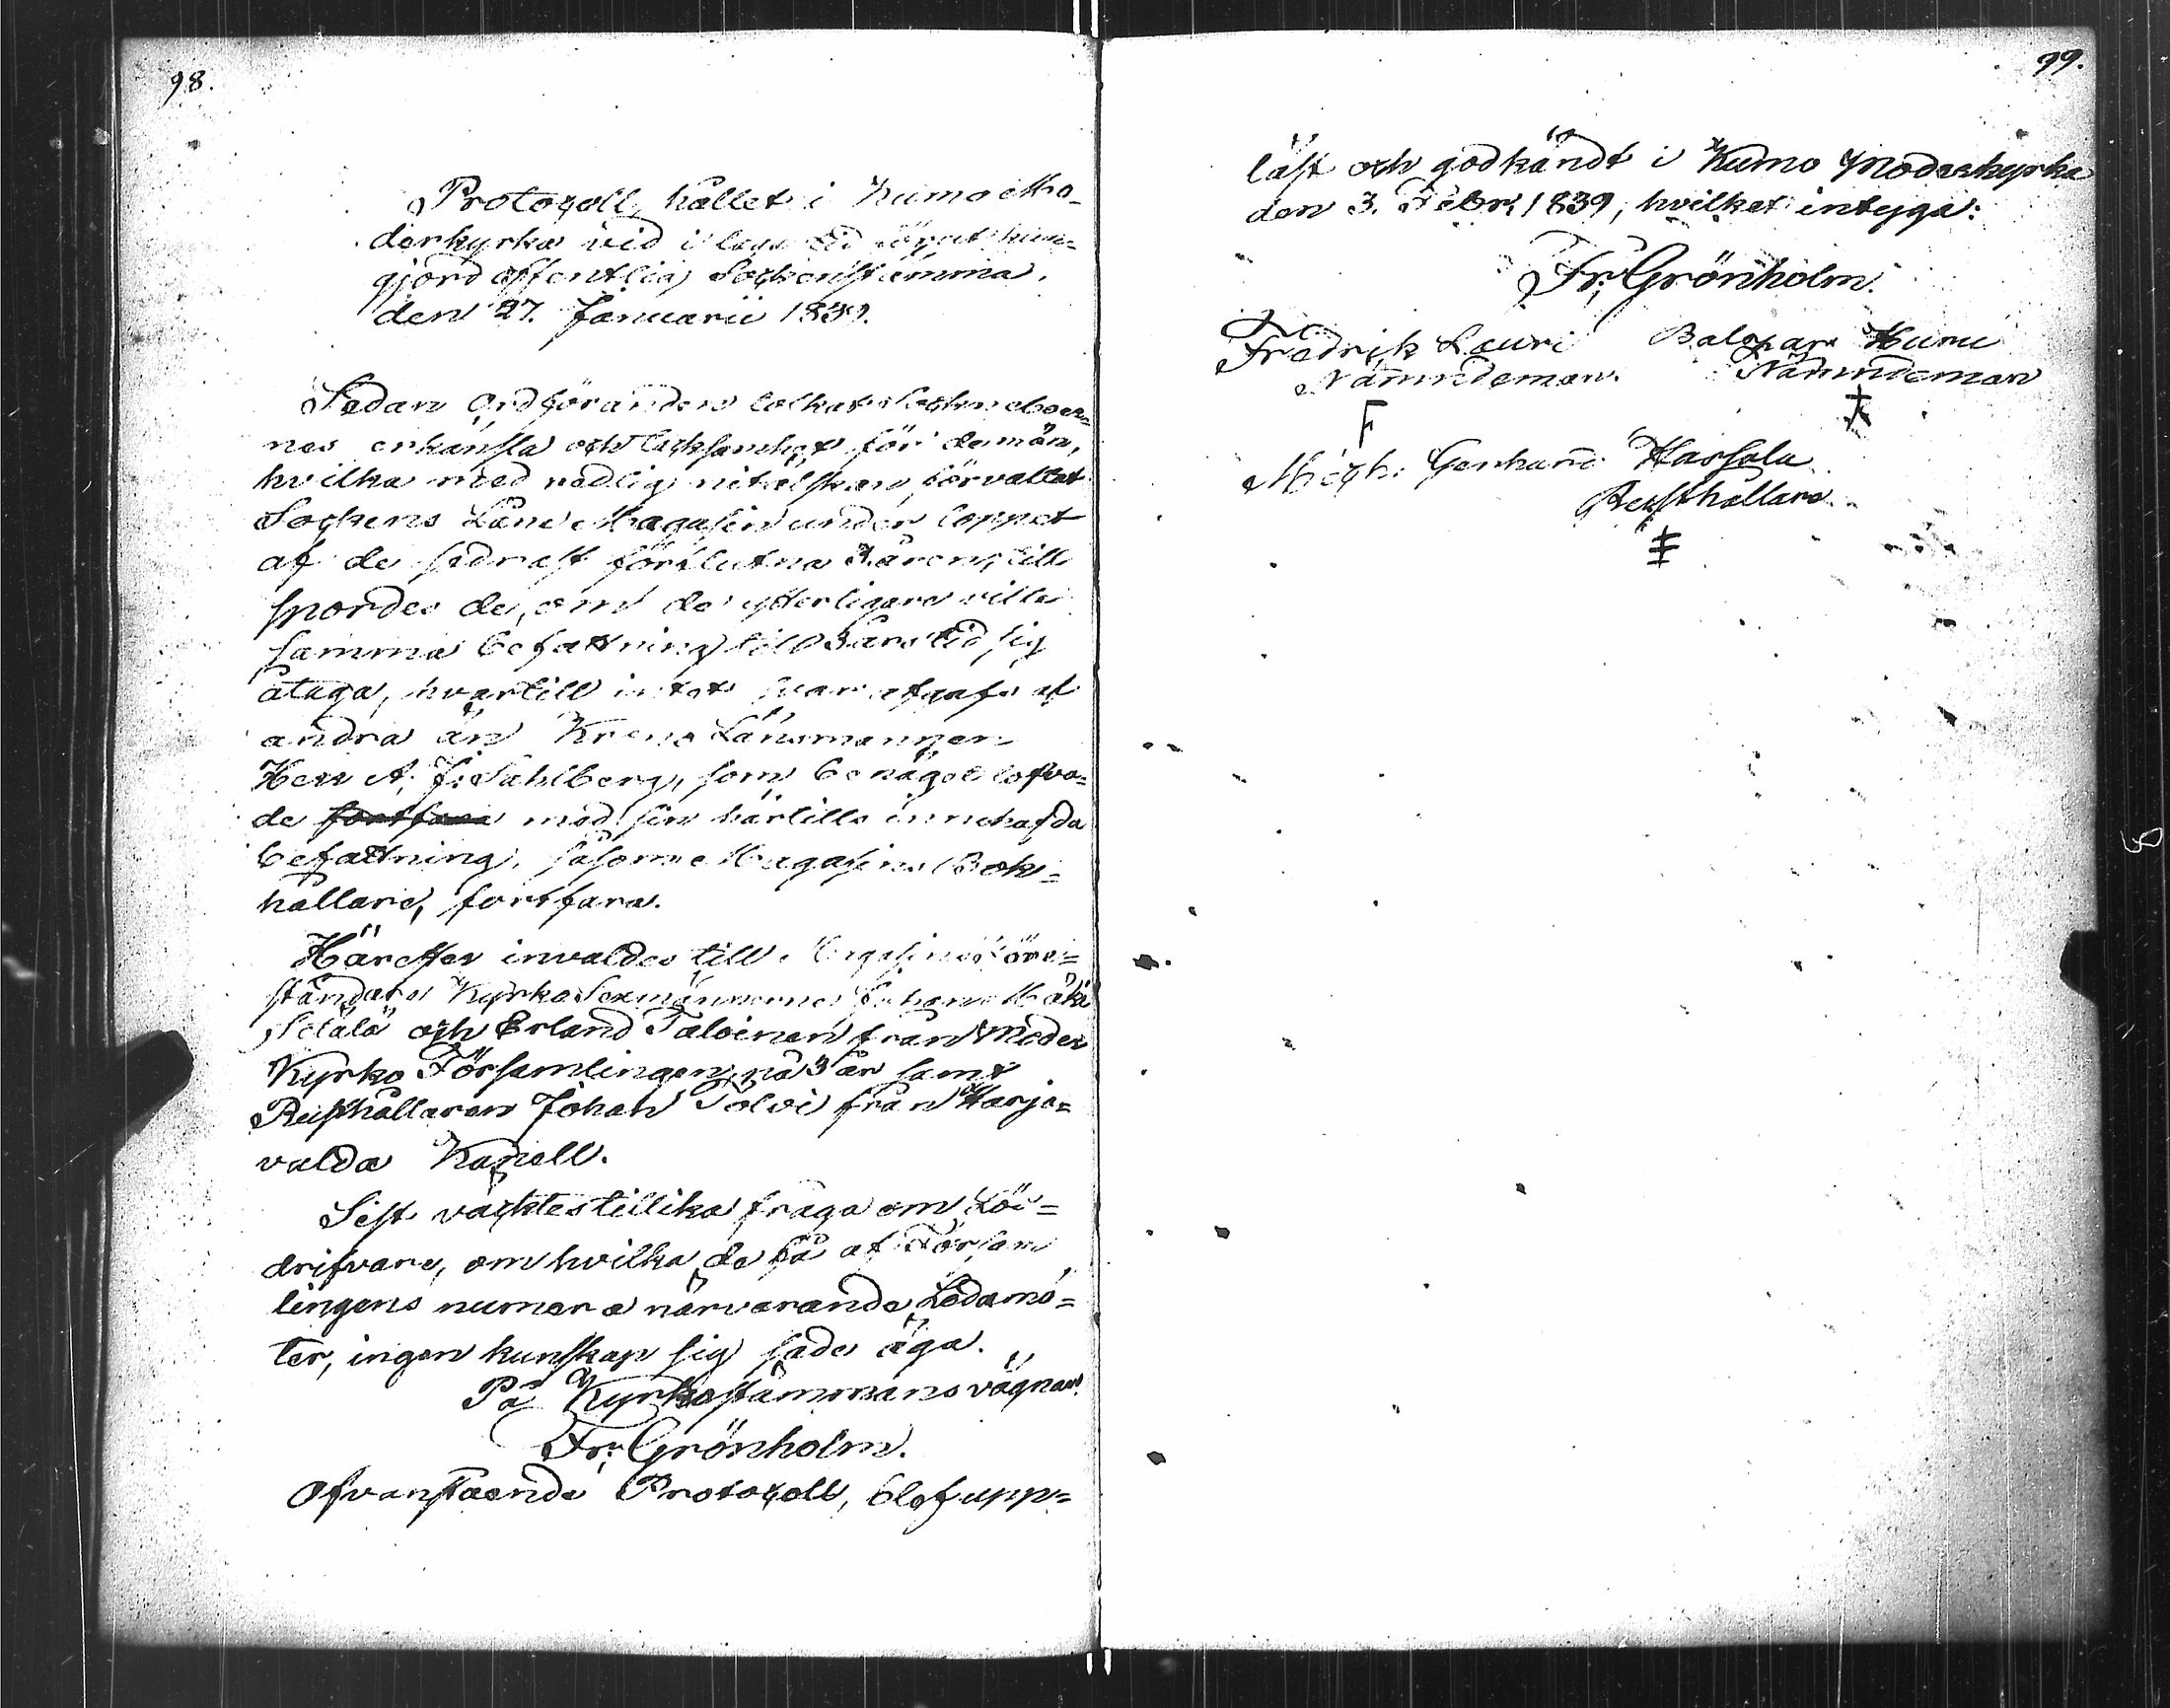 98.
Protocoll, hållet i Kumo Mo-
derkyrka vid i laga tid förut kun-
gjord offentlig Sockenstämma,
den 27. Januarii 1839.
Sedan Ordföranden tolkat Sockneboer-
nes erkänsla och tacksamhet för de män,
hvilka med redlig nitälskan förvaltat
Sockens Låne Magasin under loppet
af de sednast förflutna 3 åren, till
spordes de, om de ytterligare ville
samma befattning till 3 års tid sig
åtaga, hvartill intet svar afgafs af
andra än Krono Länsmannen
Herr A. J. Sahlberg, som benäget lofva-
de fortfara med sin härtills innehafda
befattning, såsom Magasins Bok-
hållare, fortfara.
Härefter invaldes till Magasins Före-
ståndare Kyrko Sexmännerne Johan Mäki
Setälä och Erland Taloinen från Moder
Kyrko Församlingen på 3 år samt
Rusthållaren Johan Tolvi från Harja-
valda Kapell.
Sist väcktes tillika fråga om Lös-
drifvare, om hvilka de få af Försam
lingens numera närvarande Ledamö-
ter, ingen kunskap sig sade äga.
På Kyrkostämmans vägnar
Fr: Grönholm.
Ofvanstående Protocoll, blef upp-
99.
läst och godkändt i Kumo Moderkyrka
den 3. Febr. 1839, hvilket intyga:
Fr: Grönholm.
Fredrik Lauri Baltzar Huru
Nämndeman. Nämndeman
F
Michel Gerhard Hassala
Rusthållare